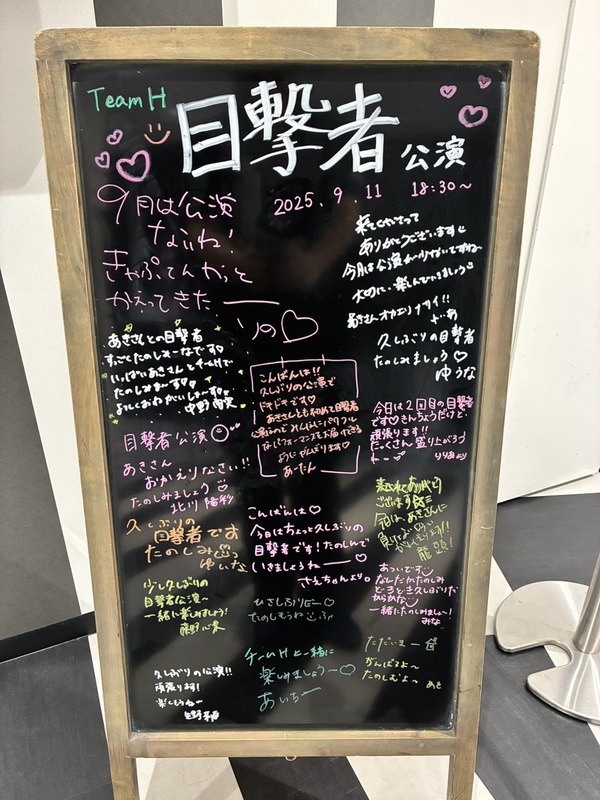 TeamH
目撃者 公演
2025.9.11 18:30〜
9月は公演
ないね！
きゃぷてんやっと
かえってきた――
りの♡
来てくださって
ありがとうございます
今月は公演が少ないですね
大切に、楽しんで
あきさんオカエリナサイ!!
久しぶりの目撃者
たのしみましょう♡
ゆうな
あきさんとの目撃者
すっごくたのしみーなです♡
いっぱいあきさんとチームHで
たのしみまーす♡
よろしくおねがいしまーす♡
こんばんは!!
久しぶりの公演で
ドキドキです♡
あきさんとも初めて目撃者
なパフォーマンスをお届けできる
ようにがんばります♡
あーたん
今日は2回目の目撃者
です♡きんちょうだけど、
頑張ります!!
たっくさん盛り上がろう
りりあ
目撃者公演☺
あきさん
おかえりなさい!!
たのしみましょう
北川 陽彩
久しぶりの
目撃者です
たのしみ
ゆいな
こんばんは♡
今日はちょっと久しぶりの
目撃者です！たのしんで
いきましょうねー♡
さえちゃんより
来てくれてありがとう
ございます
今日は、あきさんに
負けないくらい
がんばります!!
龍頭！
あついです
なんだかたのしみ
どーきどき久しぶりだ
からかな
一緒にたのしみましょ〜！
みな
少し久しぶりの
目撃者公演〜
一緒に楽しみましょう！
ひさしぶりだー♡
たのしもうね
ただいまー
がんばるよ〜
たのしむよ〜
あき
チームHと一緒に
楽しみましょう〜♡
あいちー
久しぶりの公演!!
頑張ります！
楽しもうねー